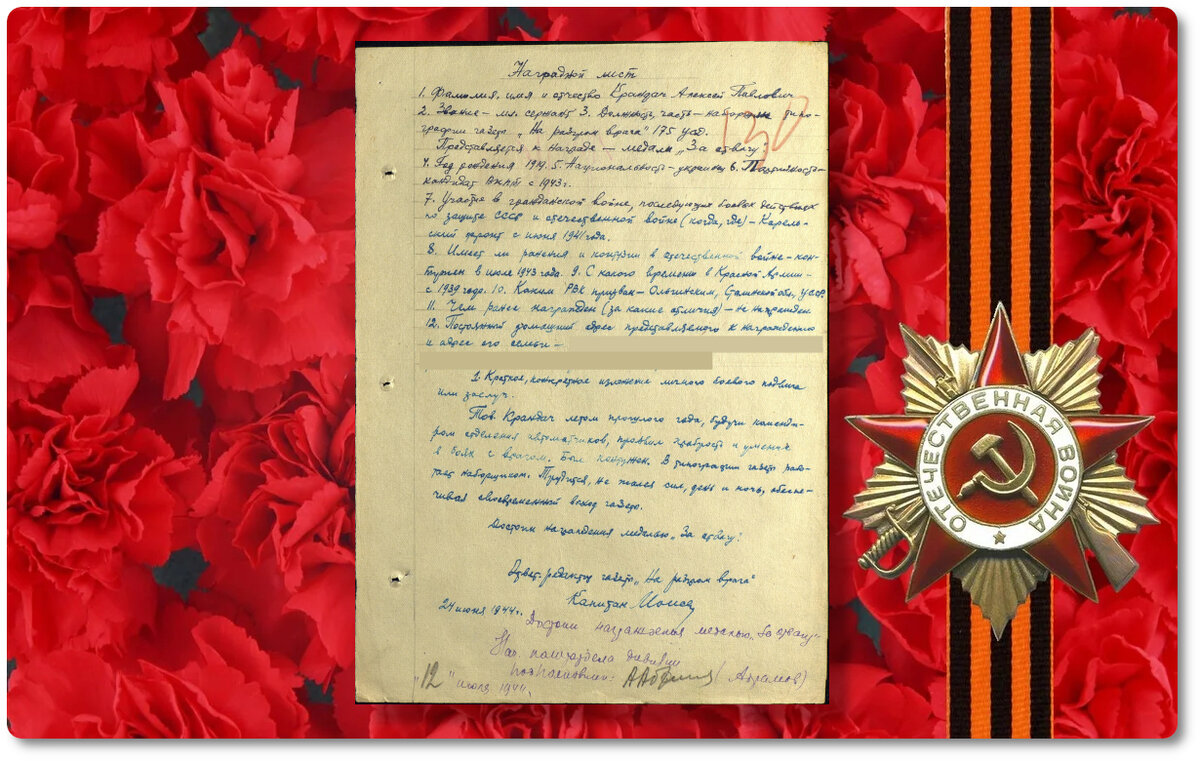 Наградной лист
1. Фамилия, имя и отчество Крандач Алексей Павлович
2. Звание – мл. сержант 3. Должность, часть – наборщик типо-
графии газеты „На разгром врага" 175 усд.
Представляется к награде – медали „За отвагу".
4. Год рождения 1919. 5. Национальность – украинец 6. Партийность –
кандидат ВКП с 1943 г.
7. Участие в гражданской войне, последующих боевых действиях
по защите СССР и отечественной войне (когда, где) – Карель-
ский фронт с июня 1941 года.
8. Имеет ли ранения и контузии в отечественной войне – кон-
тужен в июле 1943 года. 9. С какого времени в Красной Армии –
с 1939 года. 10. Каким РВК призван – Ольгинским, Сталинской обл., УССР.
11. Чем ранее награжден (за какие отличия) – не награжден
12. Постоянный домашний адрес представляемого к награждению
и адрес его семьи –
1. Краткое, конкретное изложение личного боевого подвига
или заслуг.
Тов. Крандач летом прошлого года, будучи команди-
ром отделения автоматчиков, проявил храбрость и умение
в боях с врагом. Был контужен. В типографии газеты рабо-
тает наборщиком. Трудится, не жалея сил, день и ночь, обеспе-
чивая своевременный выход газеты.
Достоин награждения медалью „За отвагу".
Ответ. редактор газеты „На разгром врага"
Капитан
24 июня 1944 г.
Достоин награждения медалью „За отвагу"
Нач. политотдела дивизии
подполковник (Абрамов)
"12" июля 1944
130
ОТЕЧЕСТВЕННАЯ ВОЙНА